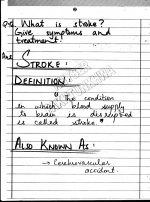 Q. What is stroke?
Give symptoms and
treatment.
Ans
STROKE:
DEFINITION:
" The condition
in which blood supply
to brain is disrupted
is called stroke."
ALSO KNOWN AS:
→ Cerebrovascular
accident.